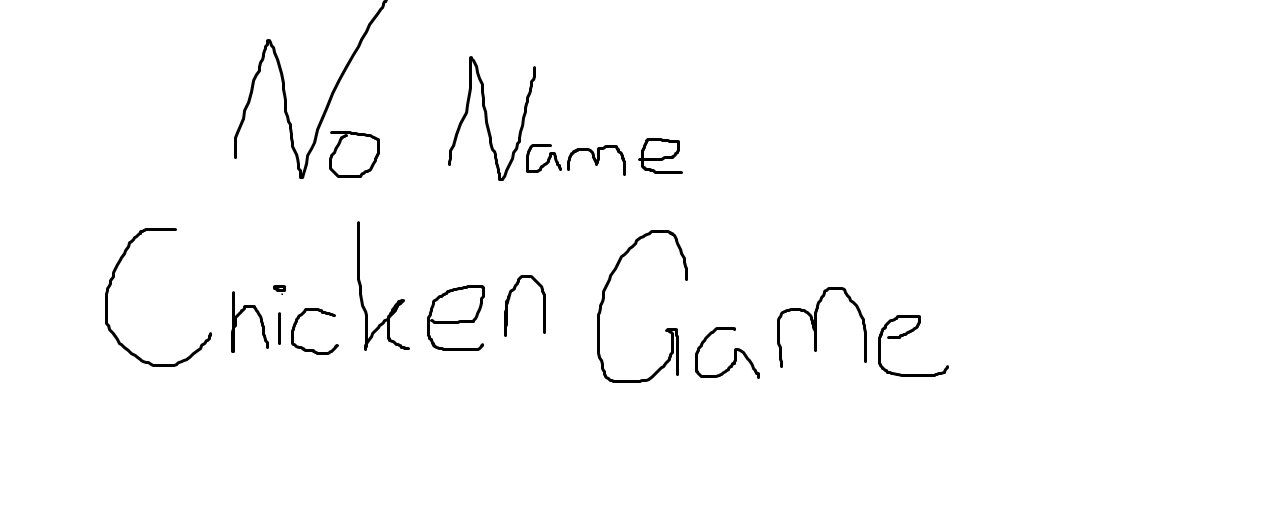 No Name
Chicken Game